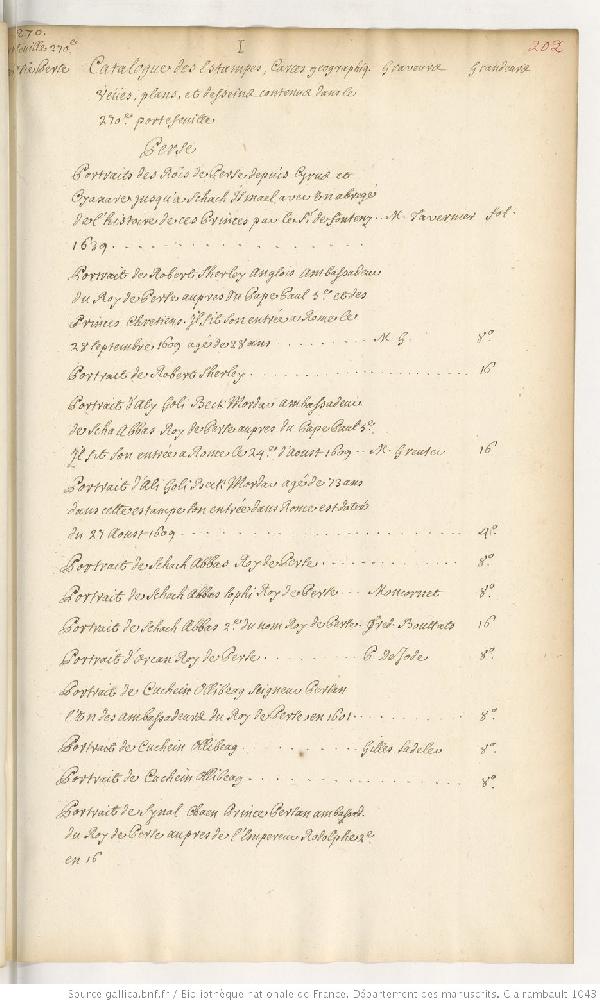 270.
I
202
portefeuille 270.e
Perse
Catalogue des Estampes, Cartes geographiq. Graveurs Grandeurs
Veües, plans, et desseins contenus dans le
270.e portefeuille
Perse
Portraits des Rois de Perse depuis Cyrus et
Cyaxare jusqu'a Schach Ismael avec un abregé
de l'histoire de ces Princes par le Sr de fonteny . M. Tavernier fol.
1639
Portrait de Robert Sherley Anglois Ambassadeur
du Roy de Perse aupres du Pape Paul 5.e et des
Princes Chretiens. Il fit son entrée a Rome le
28 septembre 1609 agé de 28 ans M. G. 8.o
Portrait de Robert Sherley 16
Portrait d'Aly Goli Beck Mordar ambassadeur
de Scha Abbas Roy de Perse aupres du Pape Paul 5.e
Il fit son entrée a Rome le 24.e d'Aoust 1609 M. Greuter 16
Portrait d'Ali Goli Beck Mordar agé de 73 ans
dans cette estampe son entrée dans Rome est datée
du 27 Aoust 1609 4.o
Portrait de Schach Abbas Roy de Perse 8.o
Portrait de Schach Abbas sophi Roy de Perse Moncornet 8.o
Portrait de Schach Abbas 2.e du nom Roy de Perse Fred. Bouttats 16
Portrait d'orcan Roy de Perse P. de Jode 8.o
Portrait de Cuchein Ollibeag seigneur Persan
l'un des ambassadeurs du Roy de Perse en 1601 8.o
Portrait de Cuchein Ollibeag Gilles Sadeler 8.o
Portrait de Cuchein Ollibeag 8.o
Portrait de Synal Chaen Prince Persan ambassad.
du Roy de Perse aupres de l'Empereur Rodolphe 2.e
en 16
Source gallica.bnf.fr / Bibliothèque nationale de France. Département des manuscrits. Clairambault 1043